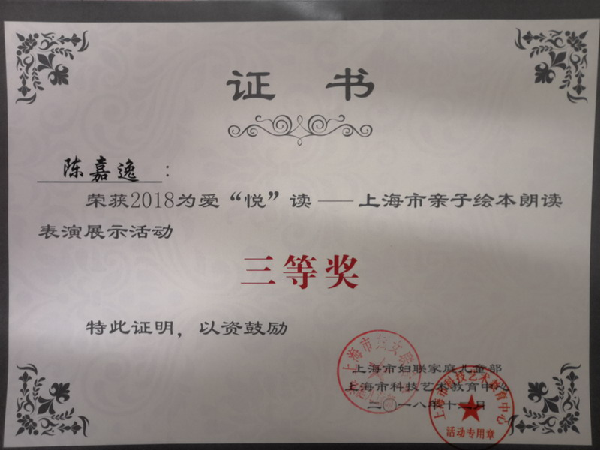 证书
陈嘉逸：
荣获2018为爱“悦”读——上海市亲子绘本朗读
表演展示活动
三等奖
特此证明，以资鼓励
上海市妇联家庭儿童部
上海市科技艺术教育中心
二〇一八年十
月
上海市科技艺术教育中心
活动专用章